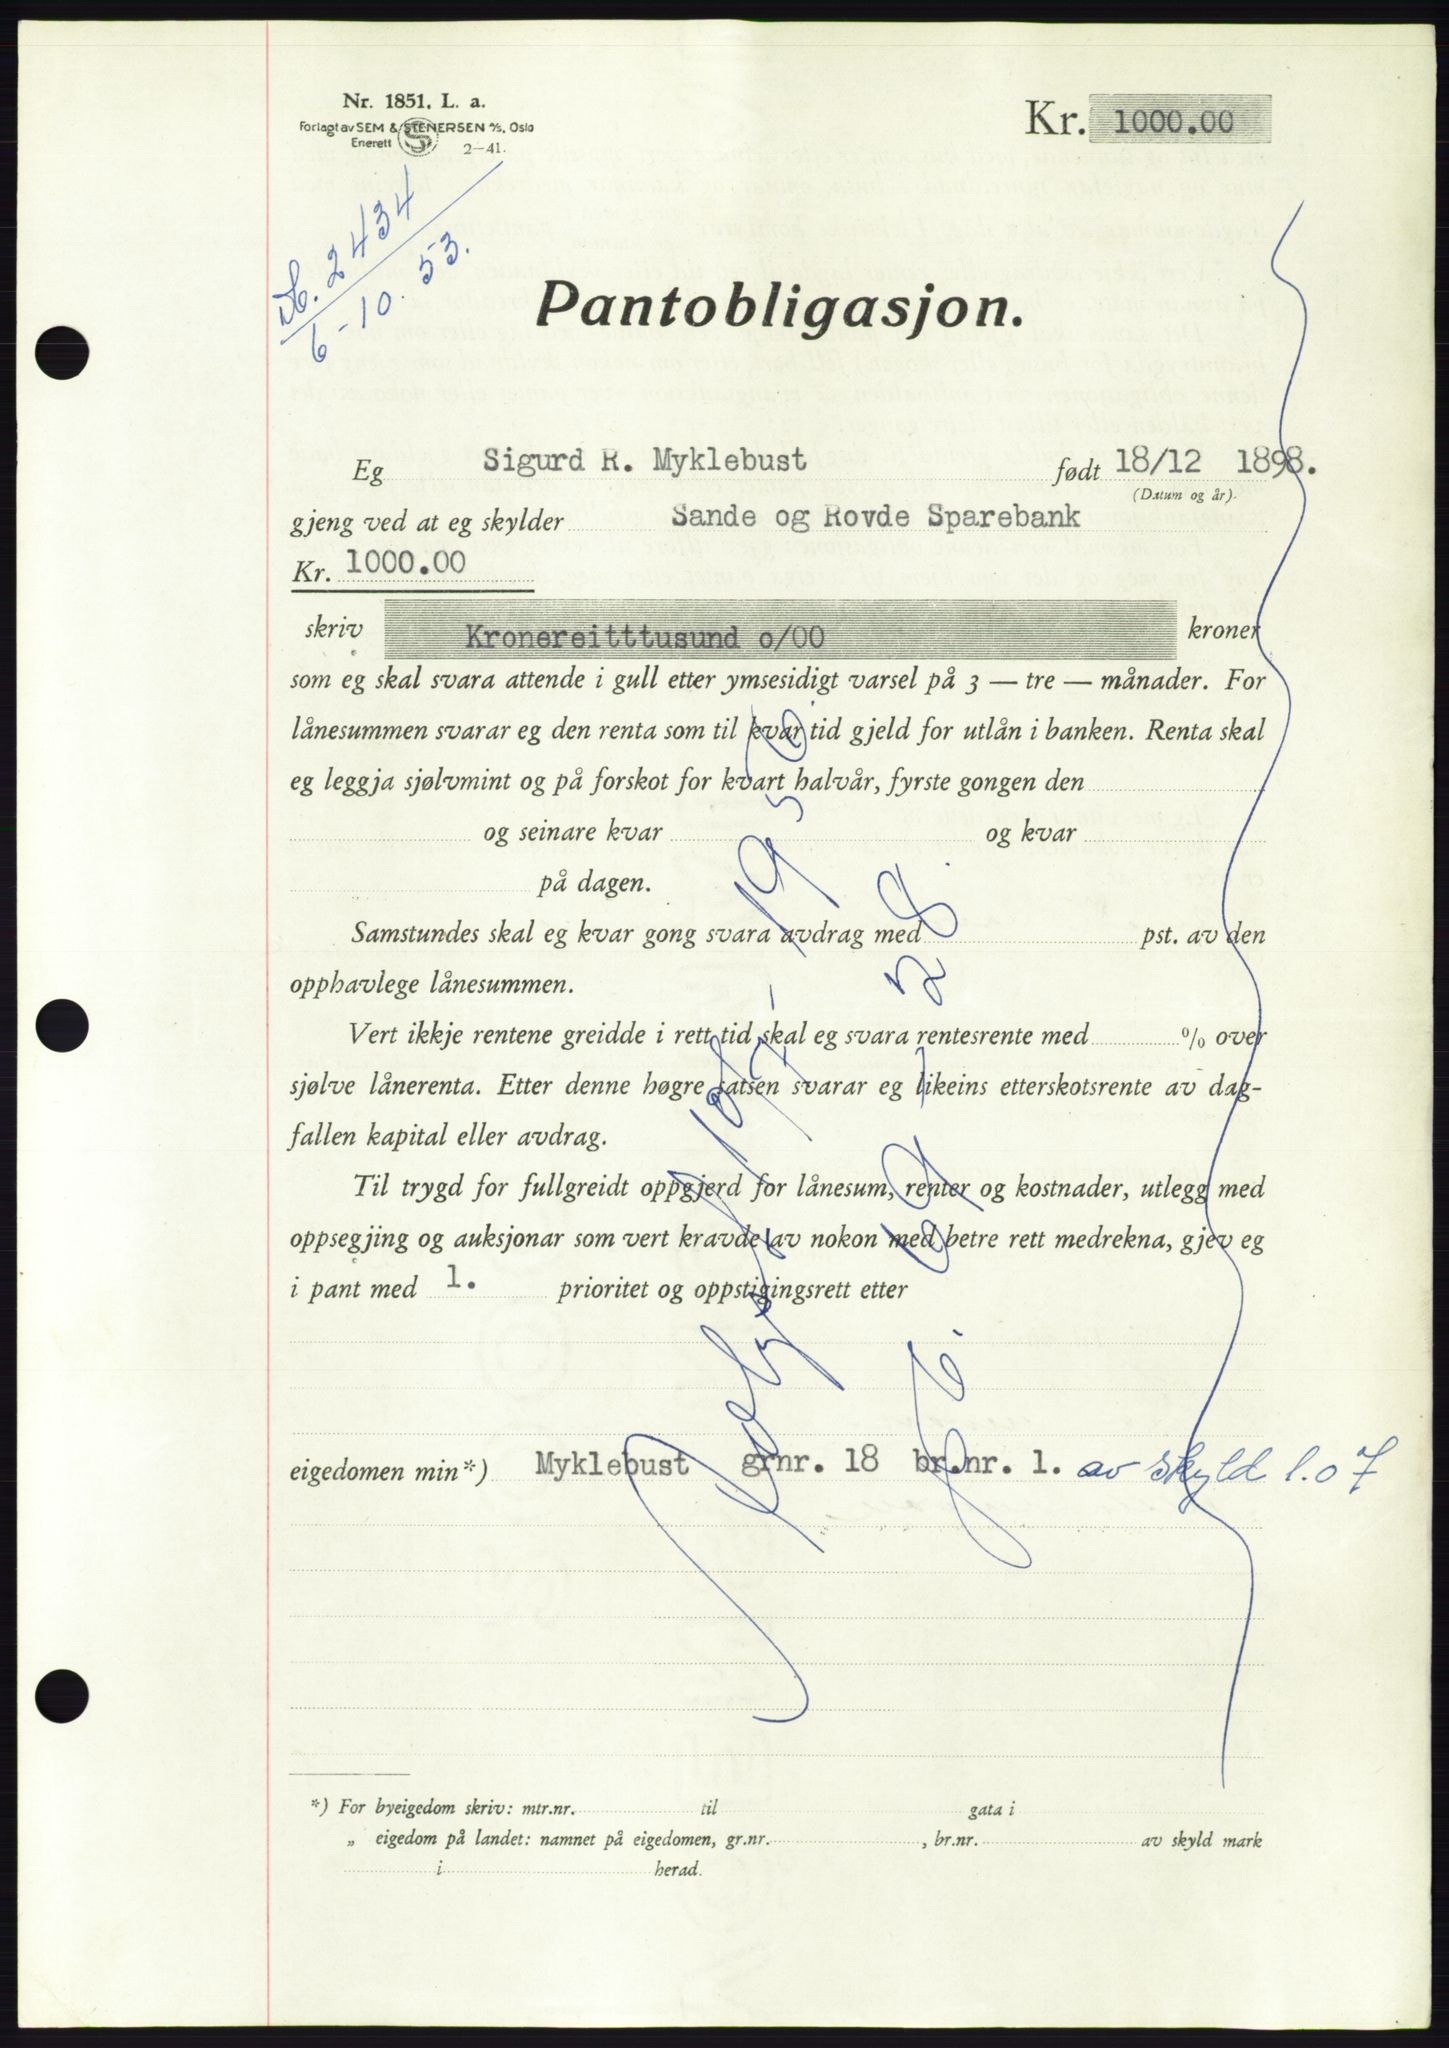 Nr. 1851. L. a.
Forlagt av SEM & STENERSEN A/S, Oslo
Enerett S 2-41.
Kr. 1000.00
Db. 2434
6-10. 53.
Pantobligasjon.
Eg Sigurd R. Myklebust født 18/12 1898.
(Datum og år).
gjeng ved at eg skylder Sande og Rovde Sparebank
Kr. 1000.00
skriv Kronereitttusund o/00 kroner
som eg skal svara attende i gull etter ymsesidigt varsel på 3 — tre — månader. For
lånesummen svarar eg den renta som til kvar tid gjeld for utlån i banken. Renta skal
eg leggja sjølvmint og på forskot for kvart halvår, fyrste gongen den
og seinare kvar og kvar
på dagen.
Samstundes skal eg kvar gong svara avdrag med pst. av den
opphavlege lånesummen.
Vert ikkje rentene greidde i rett tid skal eg svara rentesrente med % over
sjølve lånerenta. Etter denne høgre satsen svarar eg likeins etterskotsrente av dag-
fallen kapital eller avdrag.
Til trygd for fullgreidt oppgjerd for lånesum, renter og kostnader, utlegg med
oppsegjing og auksjonar som vert kravde av nokon med betre rett medrekna, gjev eg
i pant med 1. prioritet og oppstigingsrett etter
eigedomen min*) Myklebust grnr. 18 br.nr. 1. av skyld 1.07
*) For byeigedom skriv: mtr.nr. til gata i
„ eigedom på landet: namnet på eigedomen, gr.nr. , br.nr. av skyld mark
i herad.